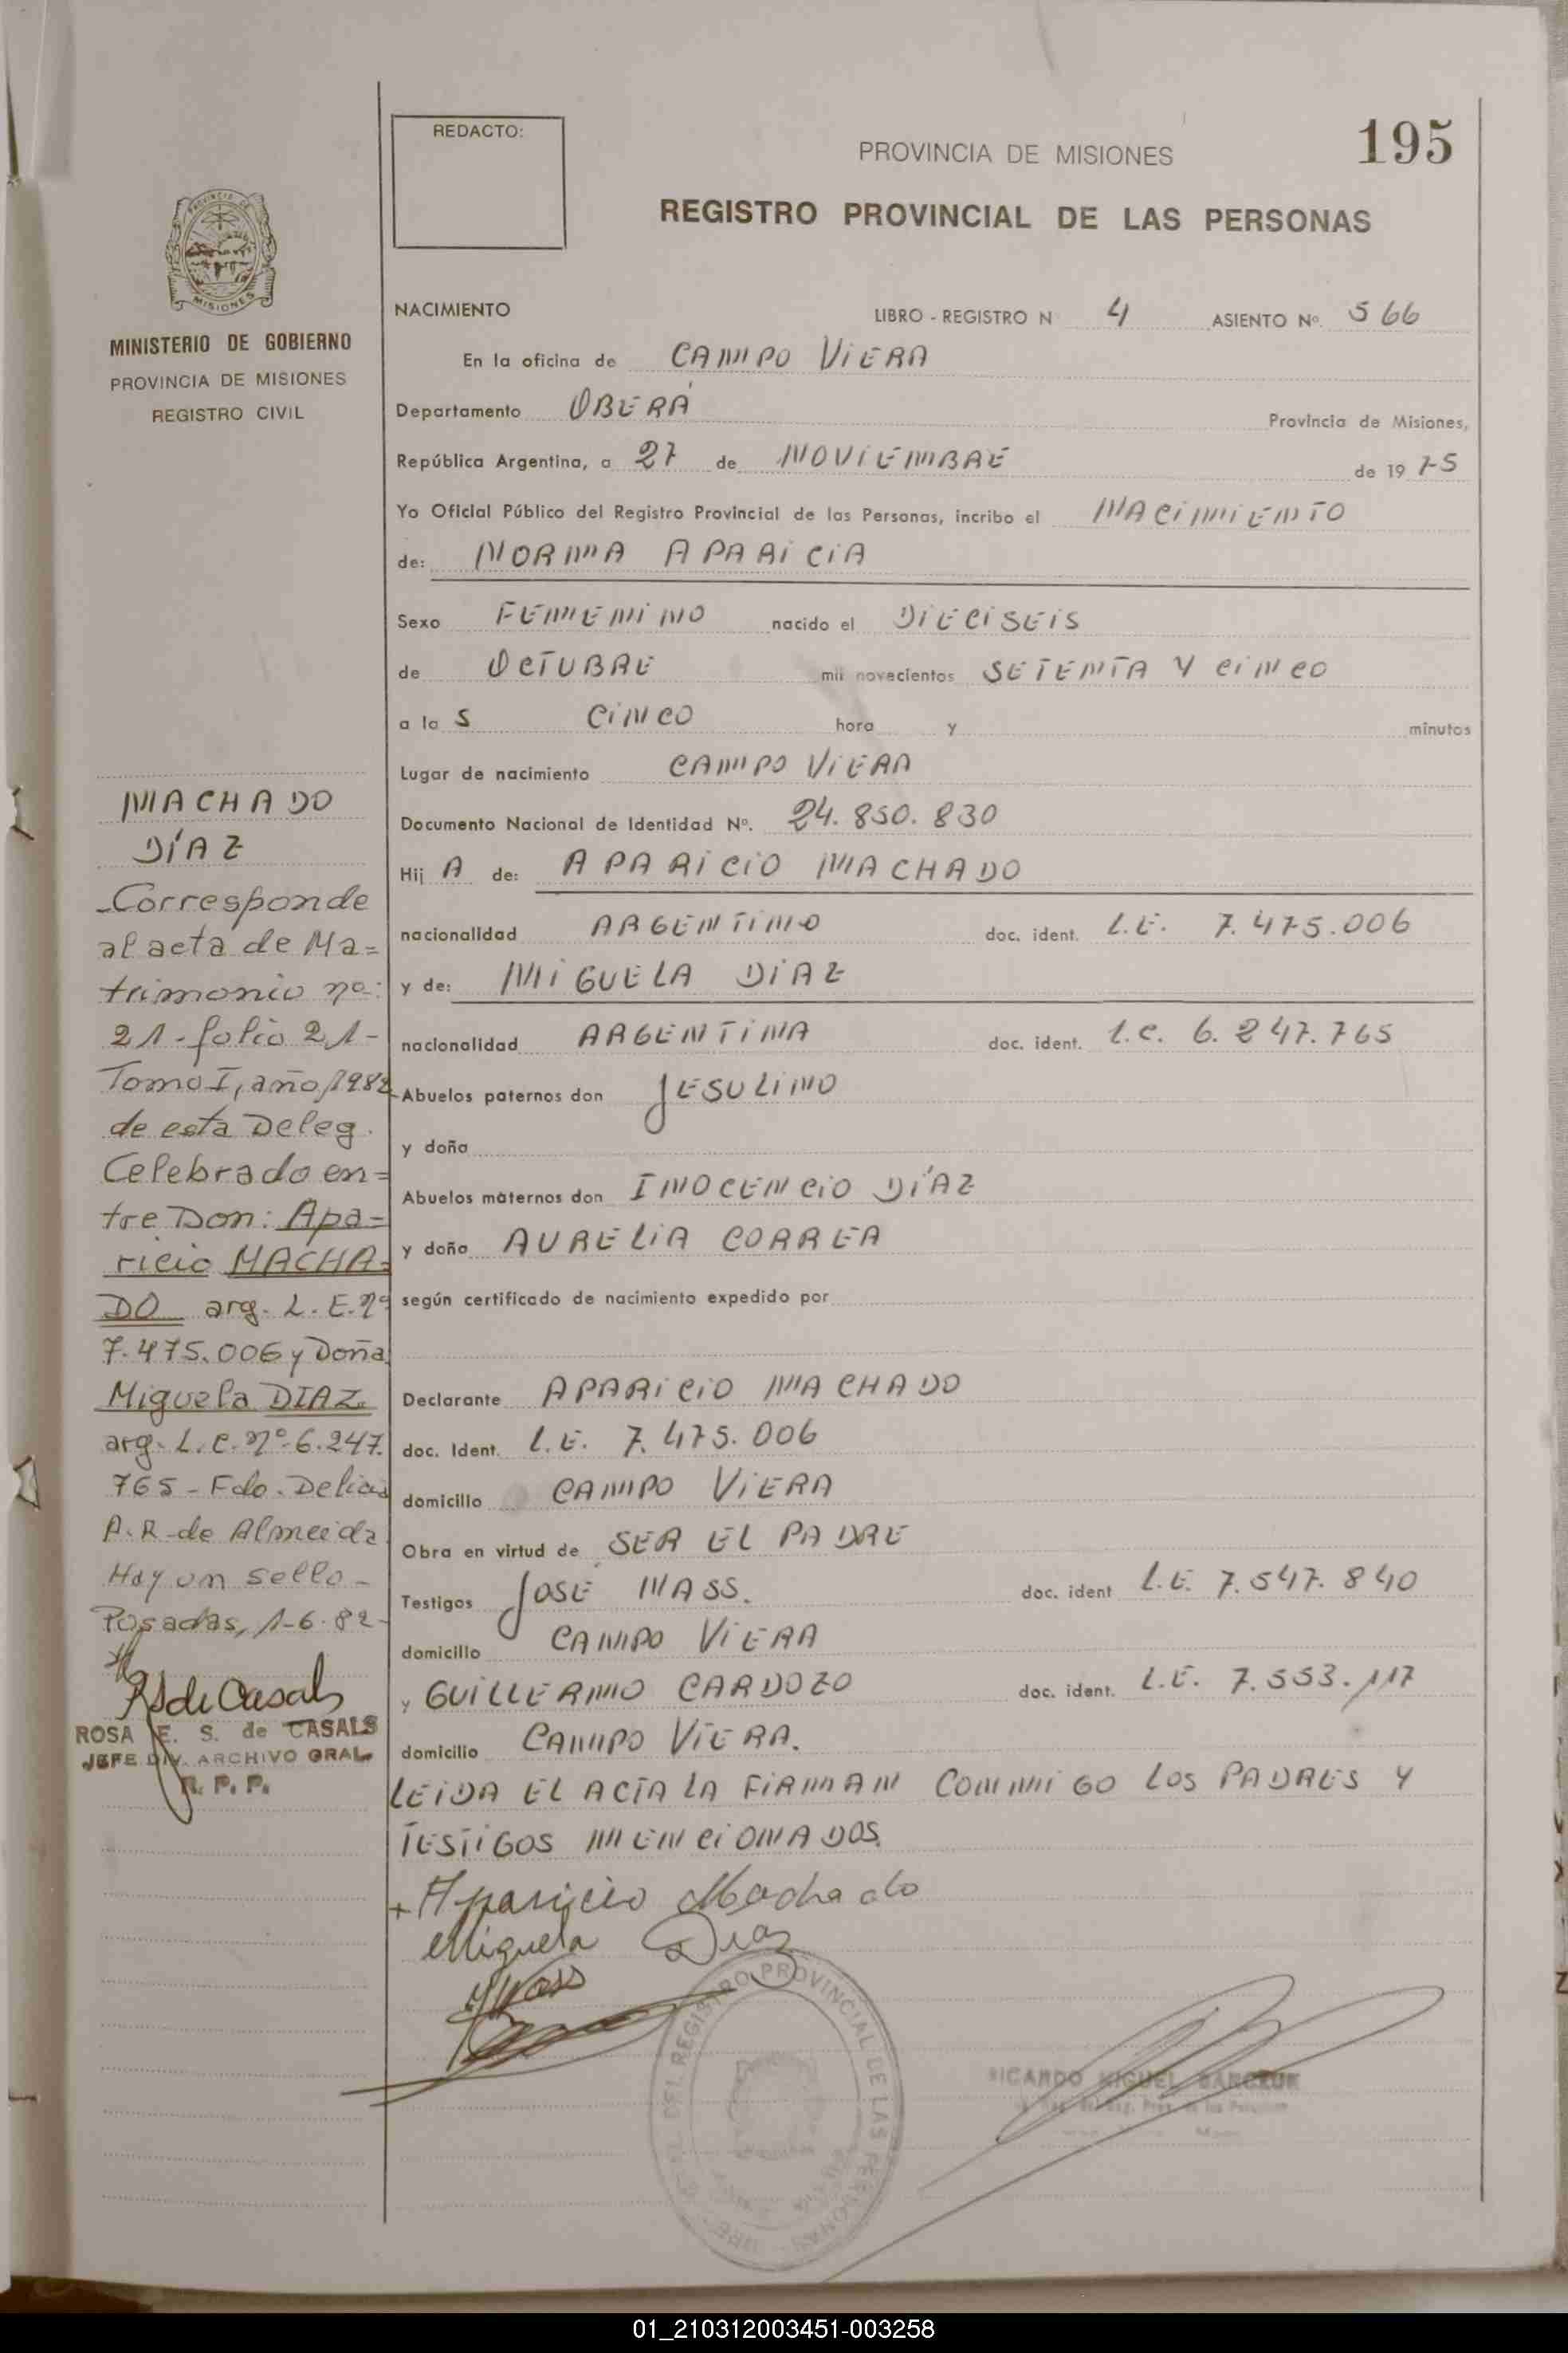 REDACTO:
PROVINCIA DE MISIONES
195
REGISTRO PROVINCIAL DE LAS PERSONAS
PROVINCIA DE
MISIONES
MINISTERIO DE GOBIERNO
PROVINCIA DE MISIONES
REGISTRO CIVIL
NACIMIENTO LIBRO - REGISTRO N 4 ASIENTO Nº. 566
En la oficina de CAMPO VIERA
Departamento OBERÁ Provincia de Misiones,
República Argentina, a 27 de NOVIEMBRE de 19 75
Yo Oficial Público del Registro Provincial de las Personas, incribo el NACIMIENTO
de: NORMA APARICIA
Sexo FEMENINO nacido el DIECISEIS
de OCTUBRE mil novecientos SETENTA Y CINCO
a la S CINCO hora y minutos
Lugar de nacimiento CAMPO VIERA
Documento Nacional de Identidad Nº. 24.850.830
Hij A de: APARICIO MACHADO
nacionalidad ARGENTINO doc. ident. L.E. 7.475.006
y de: MIGUELA DIAZ
nacionalidad ARGENTINA doc. ident. L.C. 6.247.765
Abuelos paternos don JESULINO
y doña
Abuelos maternos don INOCENCIO DÍAZ
y doña AURELIA CORREA
según certificado de nacimiento expedido por
Declarante APARICIO MACHADO
doc. Ident. L.E. 7.475.006
domicilio CAMPO VIERA
Obra en virtud de SER EL PADRE
Testigos JOSÉ MASS. doc. ident L.E. 7.547.840
domicilio CAMPO VIERA
y GUILLERMO CARDOZO doc. ident. L.E. 7.553.117
domicilio CAMPO VIERA.
LEIDA EL ACTA LA FIRMAN CONMIGO LOS PADRES Y
TESTIGOS MENCIONADOS
+ Aparicio Machado
Miguela Diaz
JMass
DEL REGISTRO PROVINCIAL DE LAS PERSONAS
RICARDO MIGUEL
MACHADO
DÍAZ
-Corresponde
al acta de Ma=
trimonio nº:
21-folio 21-
Tomo I, año 1982
de esta Deleg.
Celebrado en=
tre Don: Apa=
ricio MACHA=
DO arg. L.E.nº
7.475.006 y Doña
Miguela DIAZ
arg. L.C. nº 6.247.
765 - Fdo. Delicia
A.R. de Almeida
Hay un sello -
Posadas, 1-6-82-
RSdeCasals
ROSA E. S. de CASALS
JEFE DIV. ARCHIVO GRAL.
R. P. P.
01_210312003451-003258